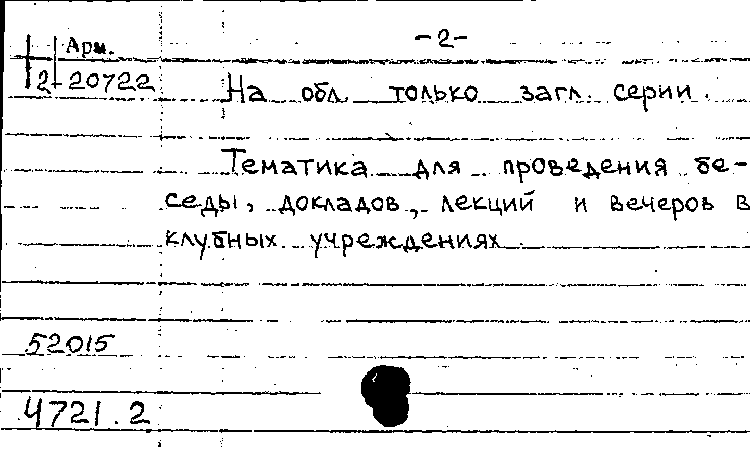 -2-
Арм.
2-20722
На обл. только загл. серии.
Тематика для проведения бе-
седы, докладов, лекций и вечеров в
клубных учреждениях
52015
4721.2